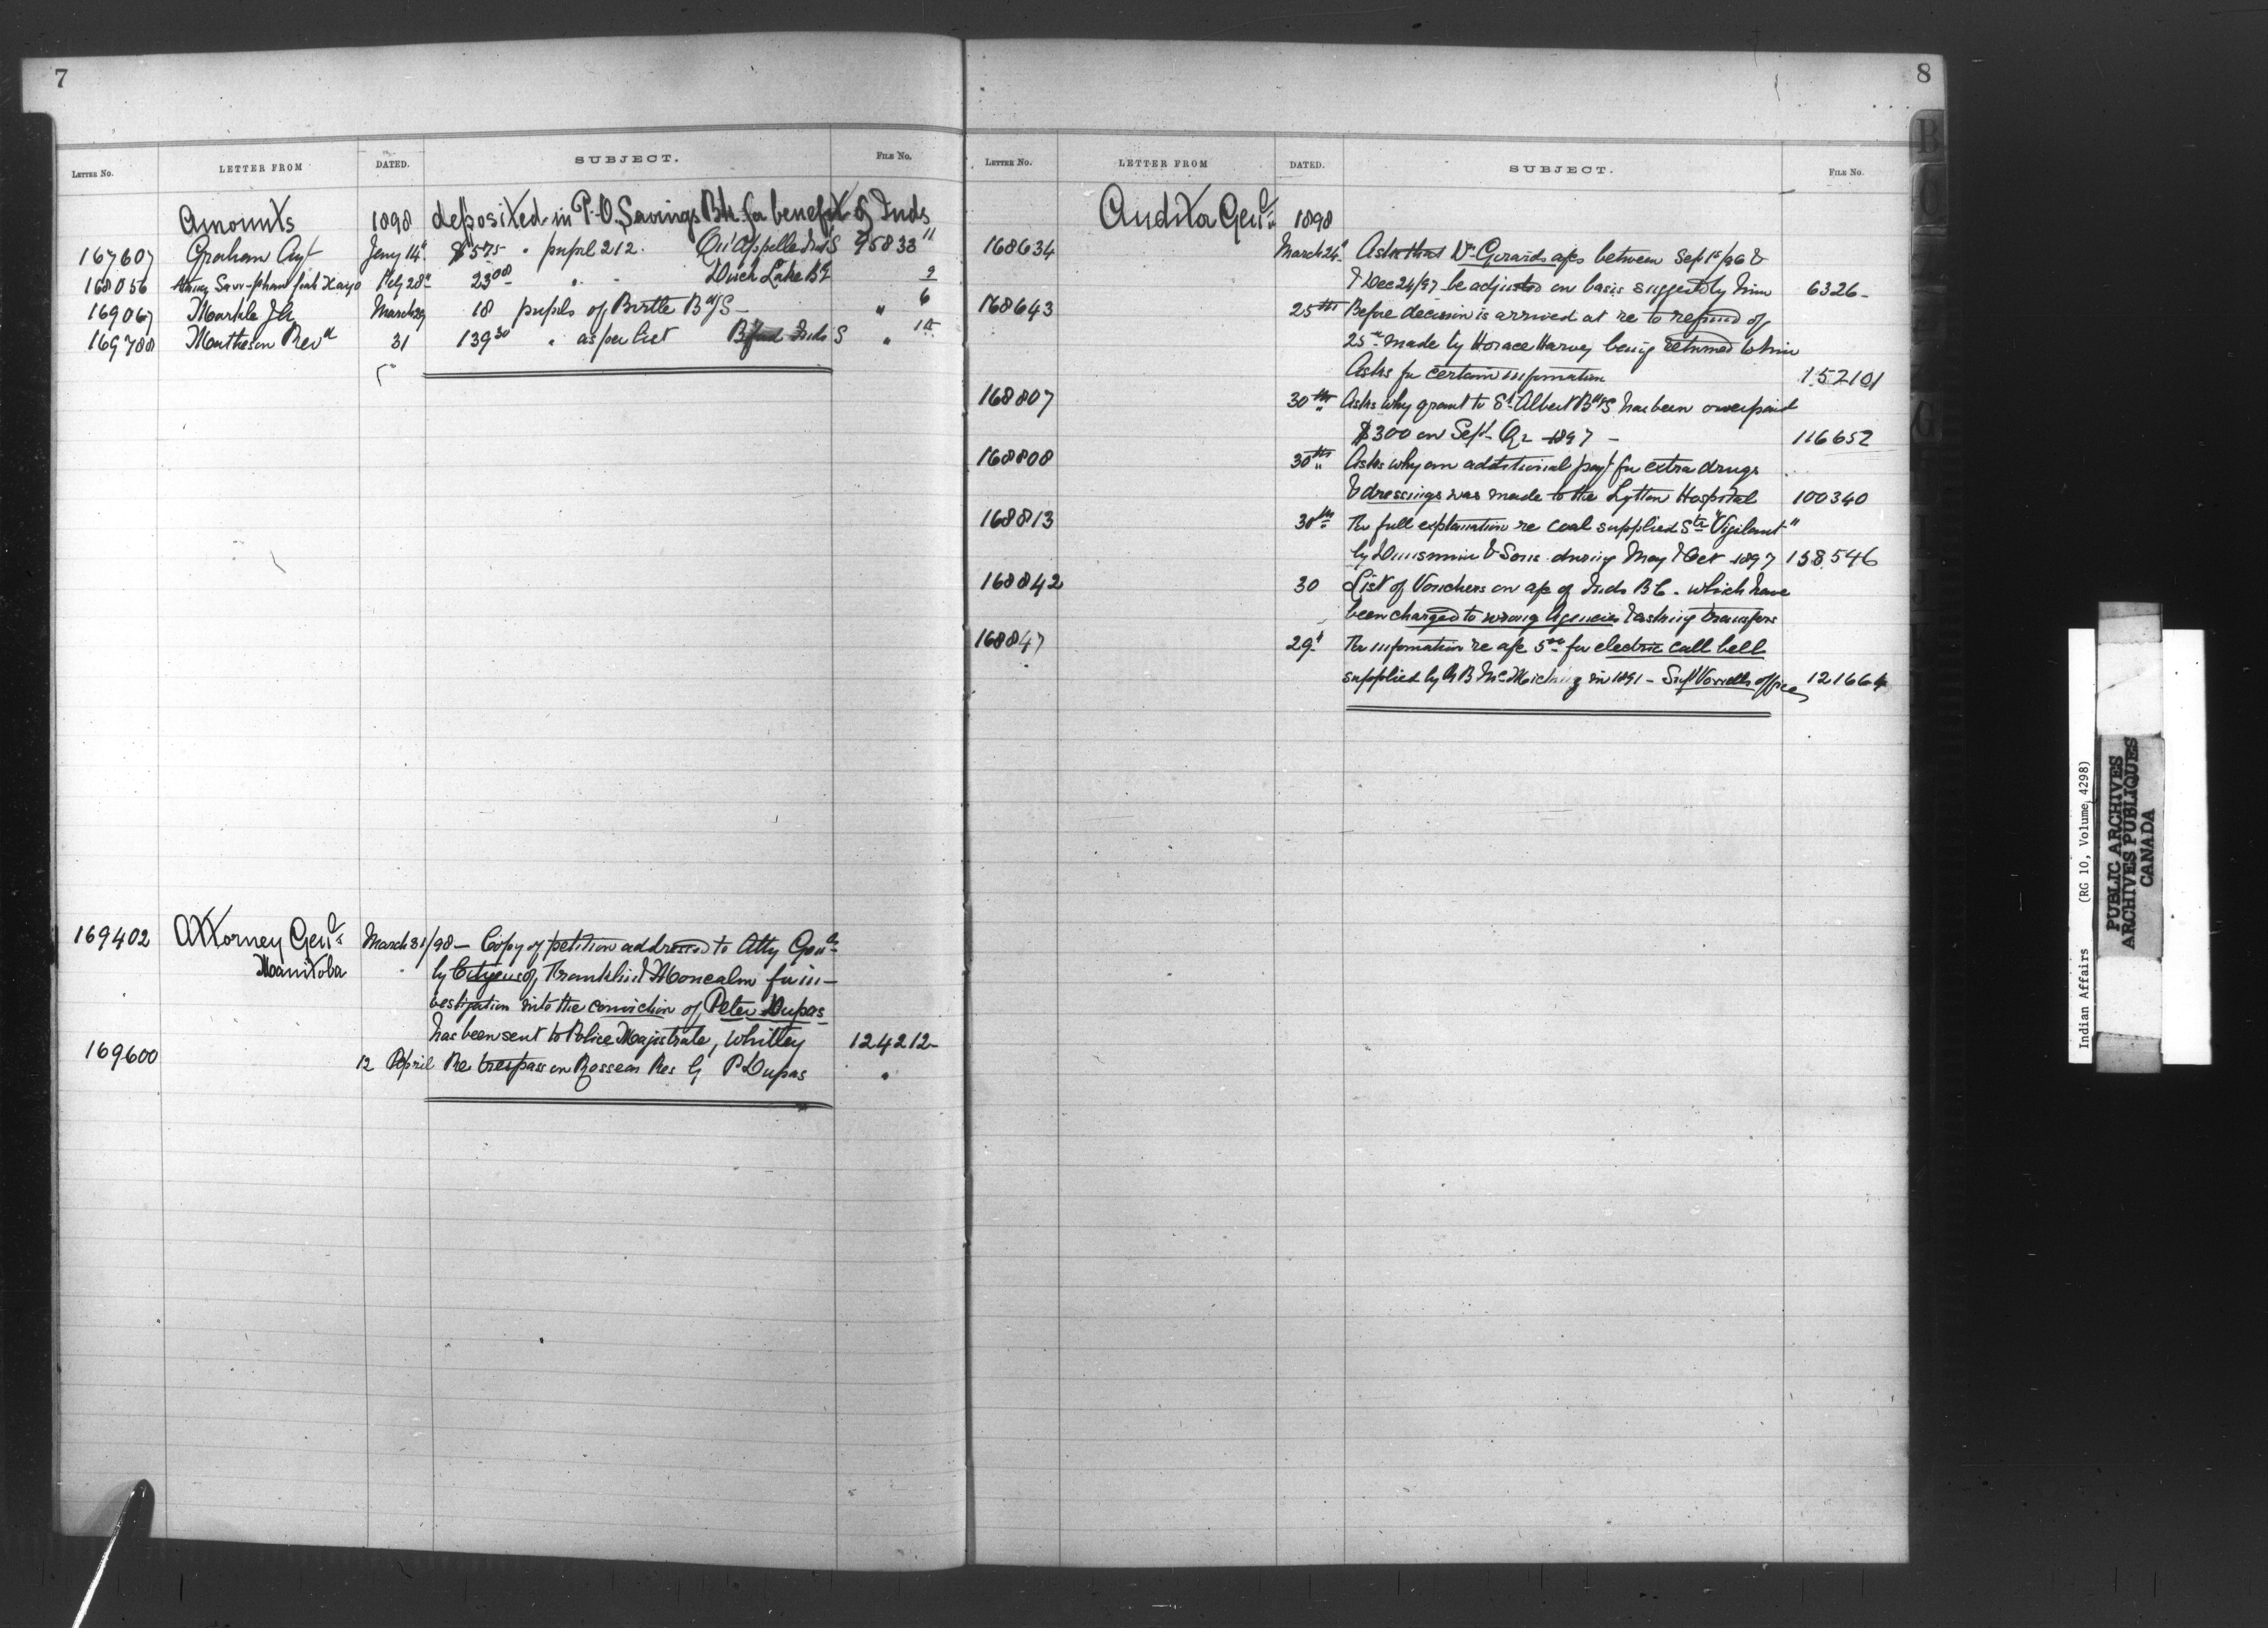 7
LETTER No. LETTER FROM DATED. SUBJECT. FILE No.
Amounts 1898 deposited in P.O. Savings Bk. for benefit of Inds
167607 Graham Agt Jany 14th $5 75 " pupil 212. Qu'Appelle Ind S 95833 11
168056 Feby 28th 23 00 " " Duck Lake B S 2
169067 Markle J A March 29 18 pupils of Birtle Bd S - " 6
169788 Matheson Revd 31 139 30 " as per list Inds S "
169402 Attorney Genl March 31/98 - Copy of petition addressed to Atty Genl
Manitoba by Citizens of Franklin & Moncalm for in-
vestigation into the conviction of Peter Dupas
has been sent to Police Magistrate, Whitley 124212-
169600 12 April Re trespass on Rosseau Res by P Dupas "
8
LETTER No. LETTER FROM DATED. SUBJECT. FILE No.
Auditor Genl 1898
168634 March 24th Asks that Dr Girards a/cs between Sep 15/96 &
& Dec 24/97 be adjusted on basis suggested by him 6326-
168643 25th Before decision is arrived at re to refund of
25 made by Horace Harvey being returned to him
Asks for certain information 152101
168807 30th Asks why grant to St Albert Bd S has been overpaid
$300 on Sept Qr 1897 - 116652
168808 30th Asks why an additional payt for extra drugs
& dressings was made to the Lytton Hospital 100340
168813 30th For full explanation re coal supplied Str "Vigilant"
by Dunsmuir & Sons during May & Oct 1897 138546
168842 30 List of Vouchers on a/c of Inds B C - which have
been charged to wrong Agencies & asking transfers
168847 29th For information re a/c 5 00 for electric call bell
supplied by A B in 1891 - Supt Vowells office 121664
B
C
G
Indian Affairs (RG 10, Volume 4298)
PUBLIC ARCHIVES
ARCHIVES PUBLIQUES
CANADA